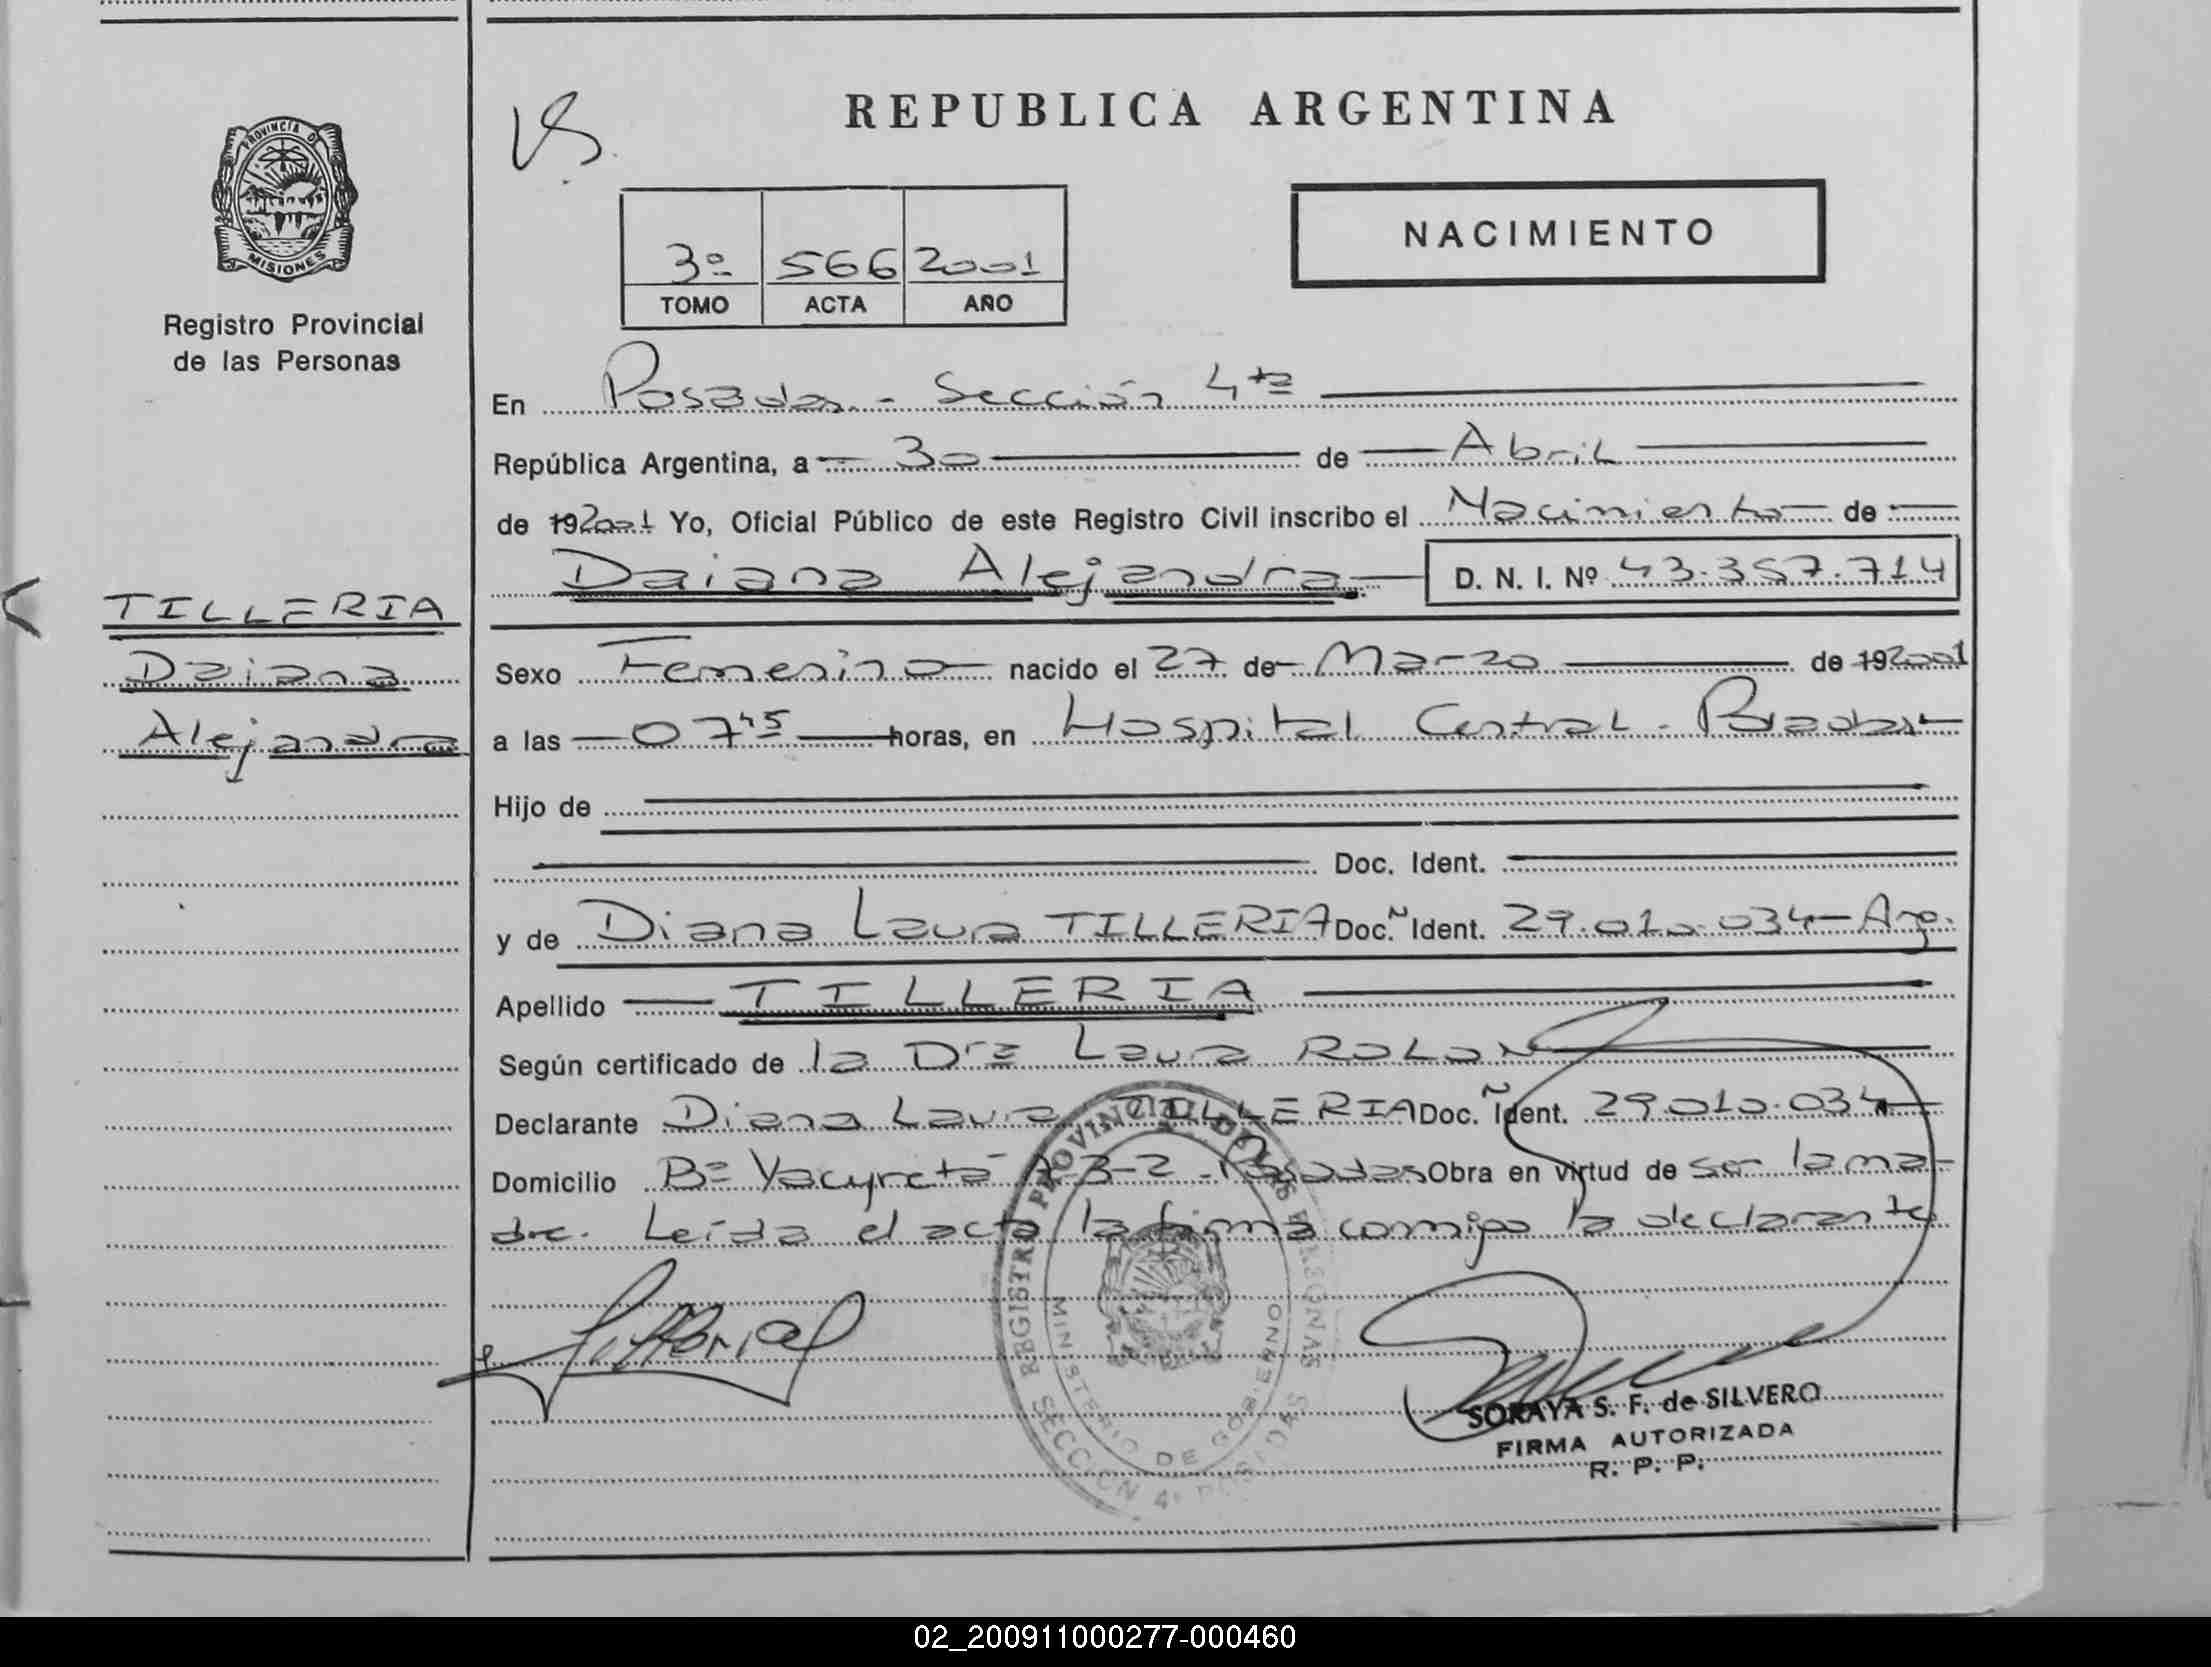 REPUBLICA ARGENTINA
PROVINCIA DE
MISIONES
Registro Provincial
de las Personas
3º 566 2001
TOMO ACTA AÑO
NACIMIENTO
En Posadas - Sección 4ta
República Argentina, a 30 de Abril
de 192001 Yo, Oficial Público de este Registro Civil inscribo el Nacimiento de
Daiana Alejandra D. N. I. Nº 43.357.714
TILLERIA
Daiana
Alejandra
Sexo Femenino nacido el 27 de Marzo de 192001
a las 07 45 horas, en Hospital Central - Posadas
Hijo de
Doc. Ident.
y de Diana Laura TILLERIA Doc. Ident. 29.010.034 - Arg.
Apellido TILLERIA
Según certificado de la Dra Laura ROLON
Declarante Diana Laura TILLERIA Doc. Ident. 29.010.034
Domicilio Bº Yacyretá 3-2 - Posadas Obra en virtud de ser la ma-
dre. Leída el acta la firma conmigo la declarante
REGISTRO PROVINCIAL DE LAS PERSONAS
MINISTERIO DE GOBIERNO
SECCION 4ª POSADAS
SORAYA S. F. de SILVERO
FIRMA AUTORIZADA
R. P. P.
02_200911000277-000460